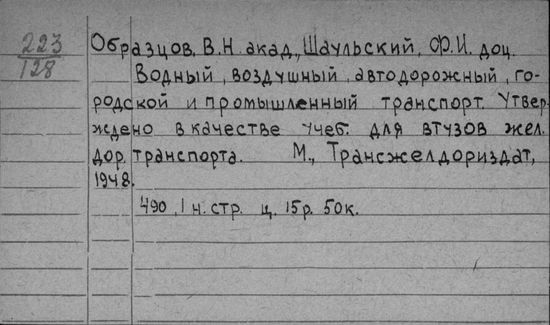 223
128
Образцов, В.Н. акад., Шаульский, Ф.И. доц.
Водный, воздушный, автодорожный, го-
родской и промышленный транспорт. Утвер-
ждено в качестве учеб. для втузов жел.
дор. транспорта. М., Трансжелдориздат,
1948.
490, 1 н. стр. ц. 15р. 50к.